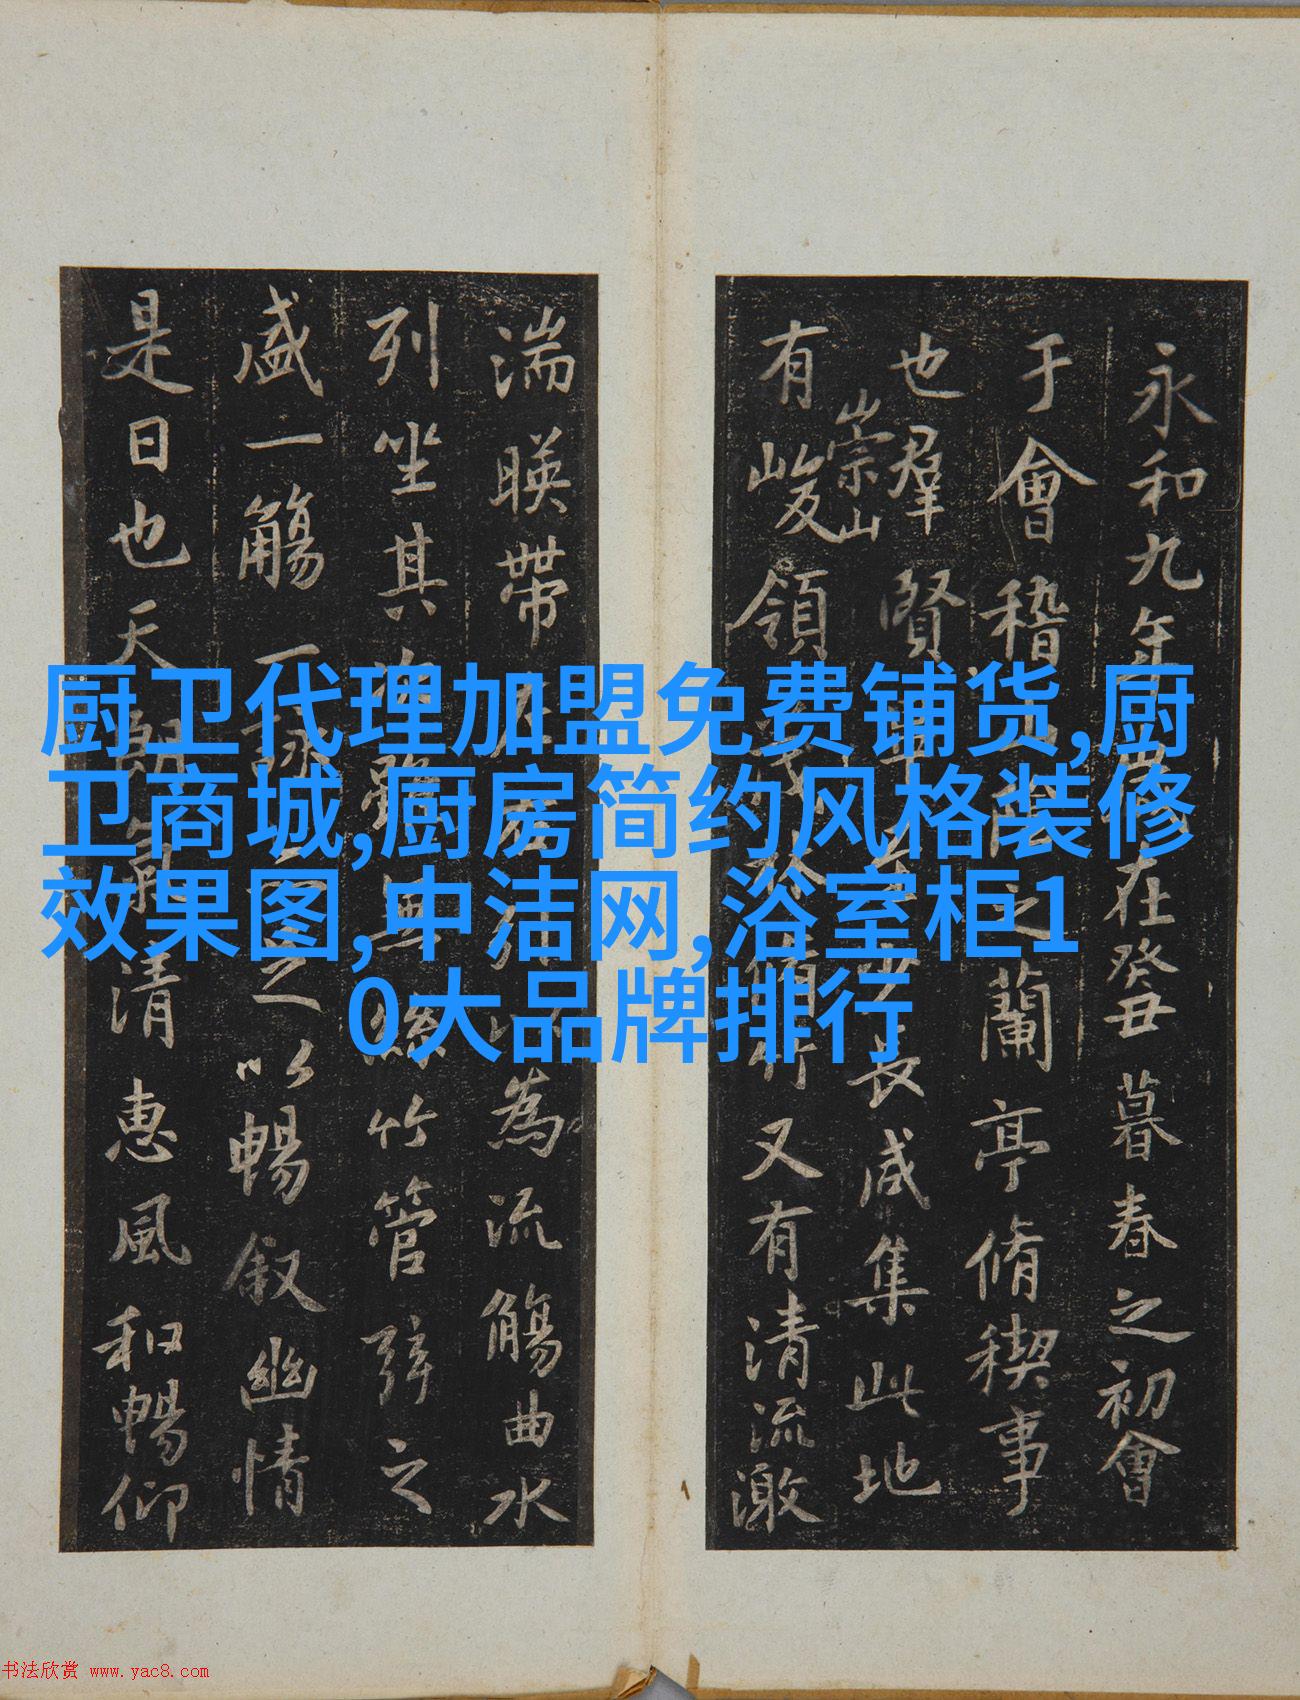 厨卫代理加盟免费铺货,厨
卫商城,厨房简约风格装修
效果图,中洁网,浴室柜1
0大品牌排行
永和九年歲在癸丑暮春之初會
于會稽山陰之蘭亭脩稧事
也羣賢畢至少長咸集此地
有崇山峻領茂林脩竹又有清流激
湍暎帶左右引以為流觴曲水
列坐其次雖無絲竹管弦之
盛一觴一詠亦足以暢叙幽情
是日也天朗氣清惠風和暢仰
书法欣赏 www.yac8.com